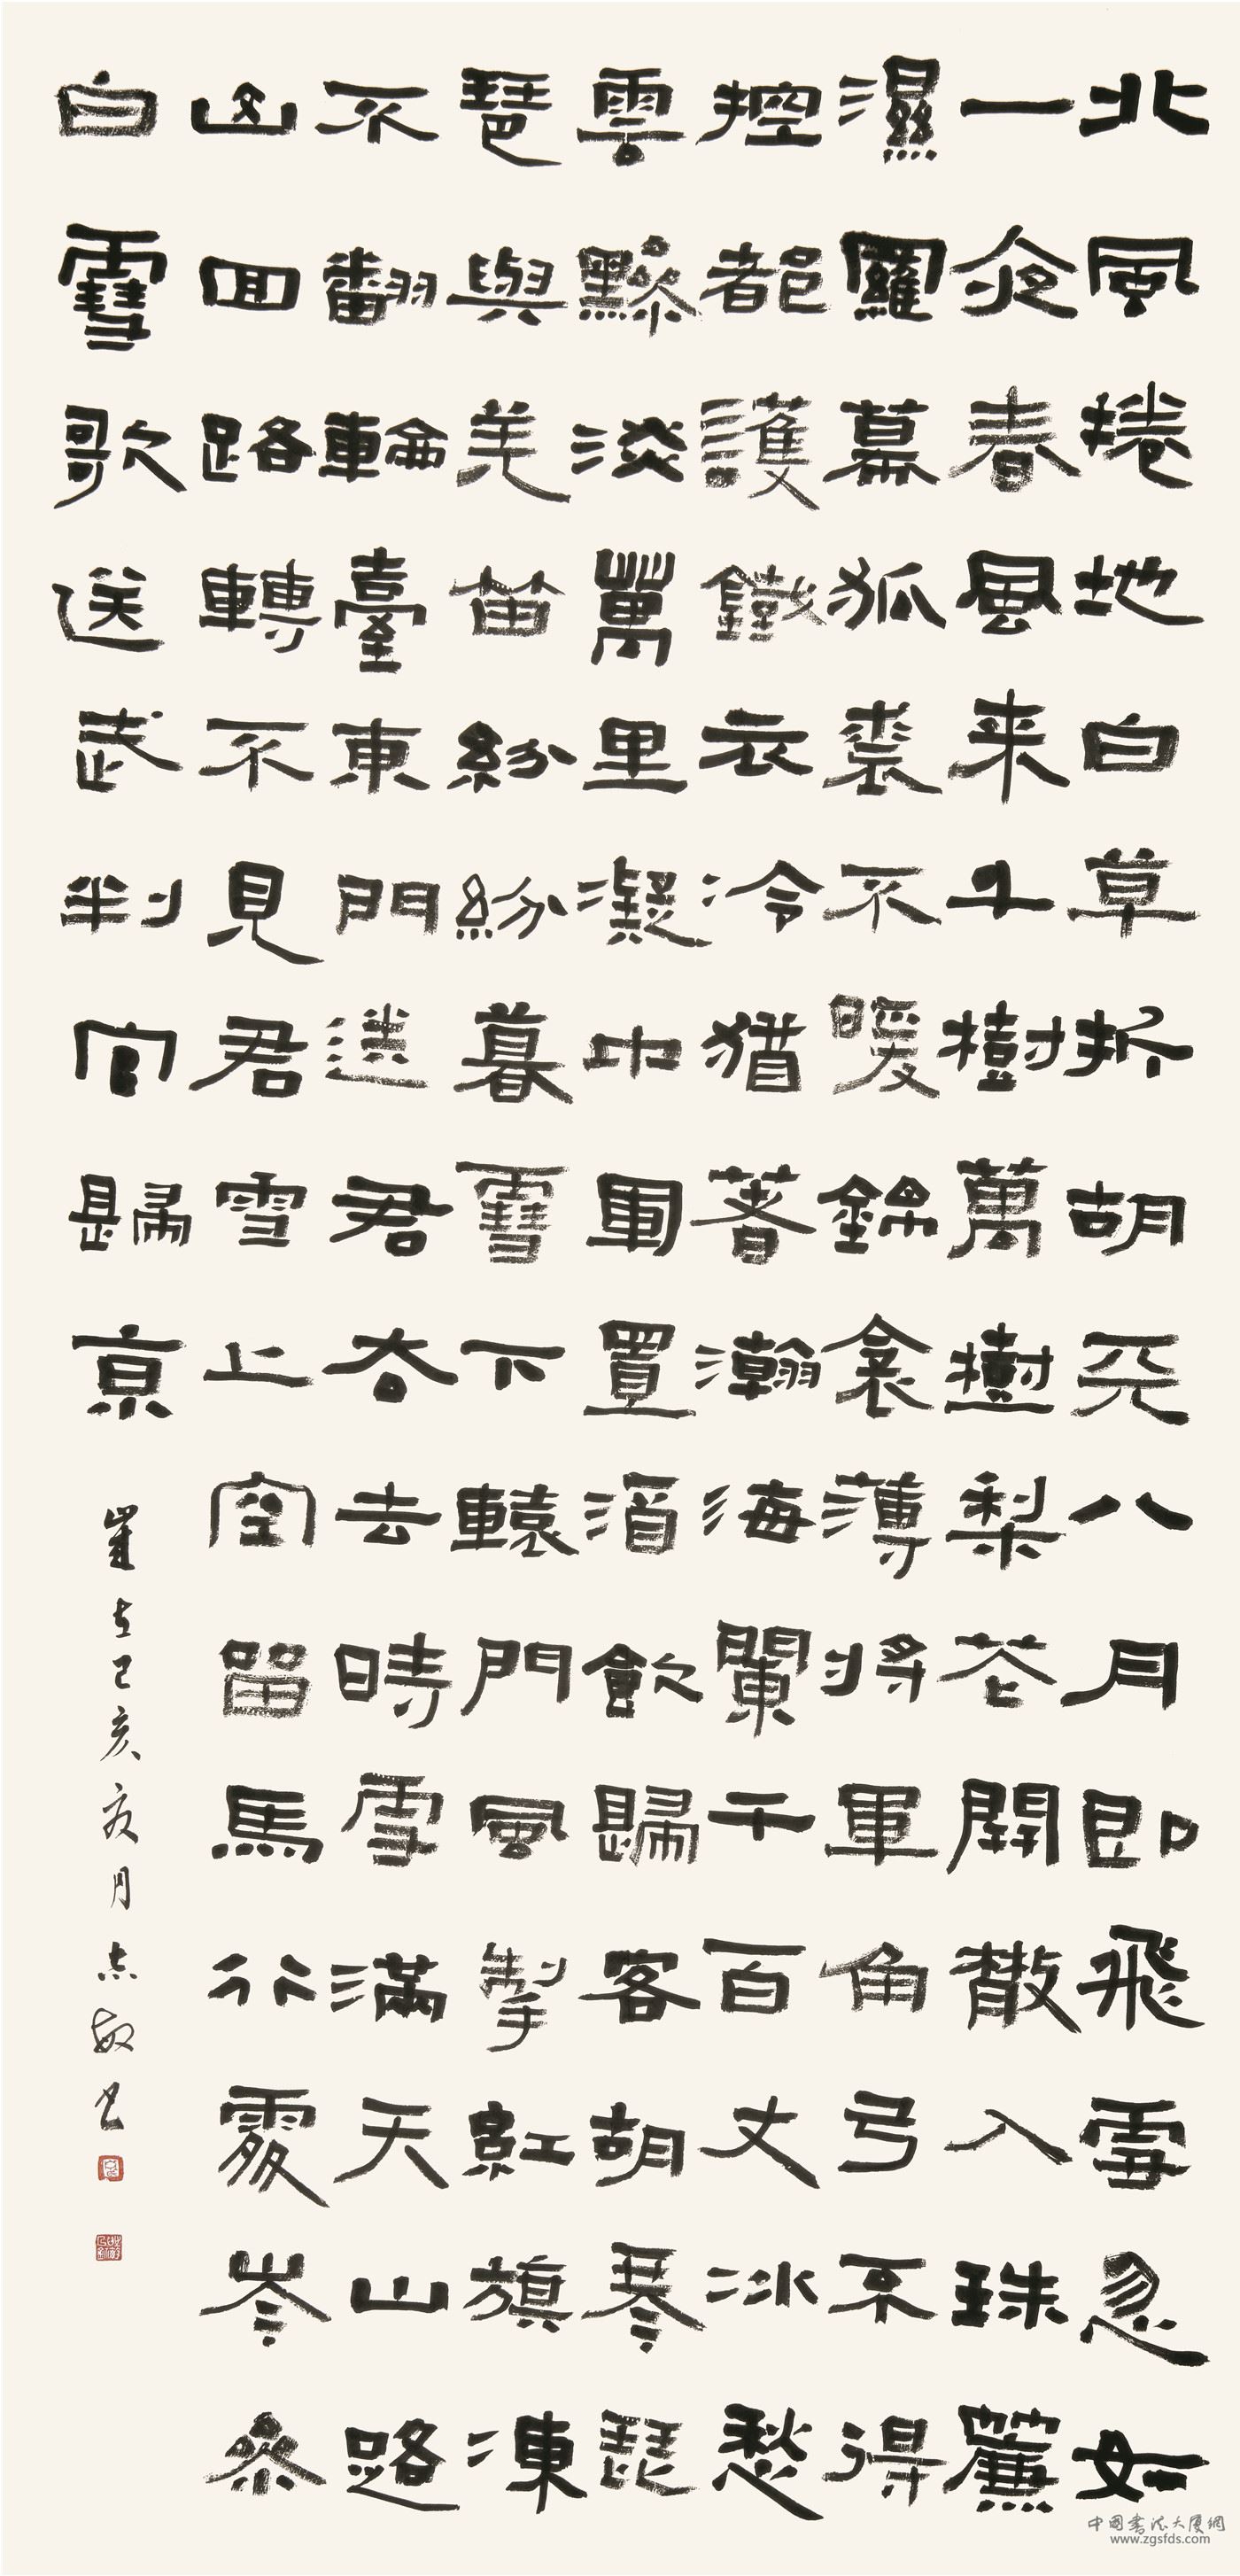 北風捲地白草折胡天八月即飛雪忽如
一夜春風来千樹萬樹梨花開散入珠簾
濕羅幕狐裘不暖錦衾薄將軍角弓不得
控都護鐵衣冷猶著瀚海闌干百丈冰愁
雲黲淡萬里凝中軍置酒飲歸客胡琴琵
琶與羌笛紛紛暮雪下轅門風掣紅旗凍
不翻輪臺東門送君去去時雪滿天山路
山回路轉不見君雪上空留馬行處岑参
白雪歌送武判官歸京
歲在己亥亥月志敏書
中国書法大廈網
www.zgsfds.com